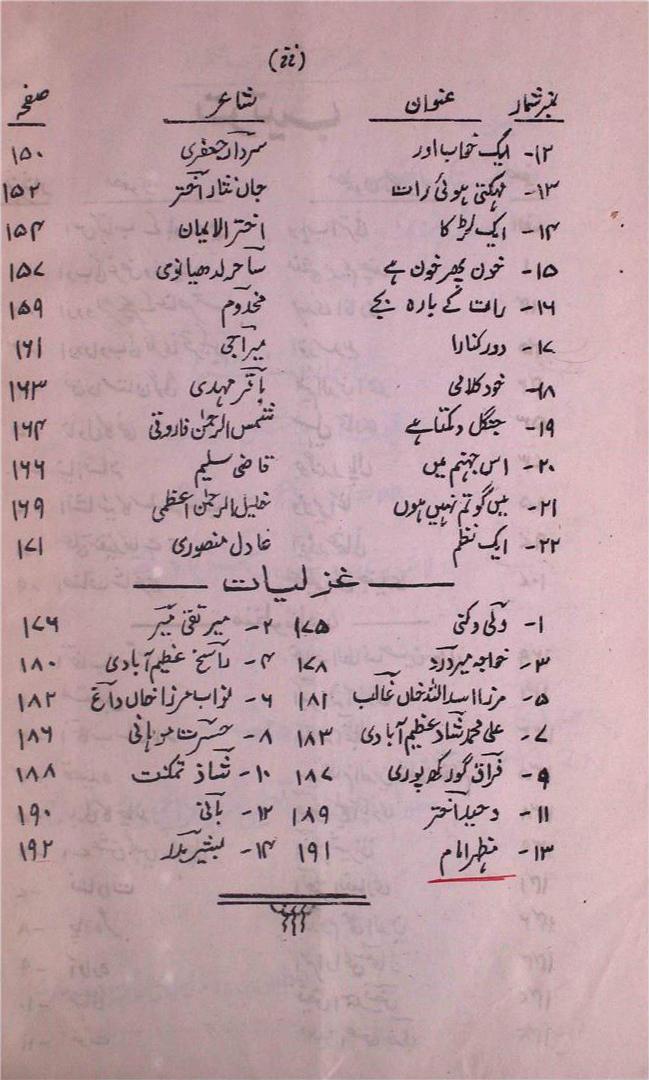 نمبر شمار عنوان شاعر صفحہ
۱۲- ایک خواب اور سردار جعفری ۱۵۰
۱۳- مہکتی ہوئی رات جاں نثار اختر ۱۵۲
۱۴- ایک لڑکا اختر الایمان ۱۵۴
۱۵- خون پھر خون ہے ساحر لدھیانوی ۱۵۷
۱۶- رات کے بارہ بجے مخدوم ۱۵۹
۱۷- دور کنارا میراجی ۱۶۱
۱۸- خود کلامی باقر مہدی ۱۶۳
۱۹- جنگل دہکتا ہے شمس الرحمٰن فاروقی ۱۶۴
۲۰- اس جہنم میں قاضی سلیم ۱۶۶
۲۱- میں گوتم نہیں ہوں خلیل الرحمٰن اعظمی ۱۶۹
۲۲- ایک نظم عادل منصوری ۱۷۱
غزلیات
۱- ولی دکنی ۱۷۵ ۲- میر تقی میر ۱۷۶
۳- خواجہ میر درد ۱۷۸ ۴- راسخ عظیم آبادی ۱۸۰
۵- مرزا اسد اللہ خاں غالب ۱۸۱ ۶- نواب مرزا خاں داغ ۱۸۲
۷- علی محمد شاد عظیم آبادی ۱۸۳ ۸- حسرت موہانی ۱۸۶
۹- فراق گورکھپوری ۱۸۷ ۱۰- شاذ تمکنت ۱۸۸
۱۱- وحید اختر ۱۸۹ ۱۲- بانی ۱۹۰
۱۳- مظہر امام ۱۹۱ ۱۴- بشیر بدر ۱۹۲